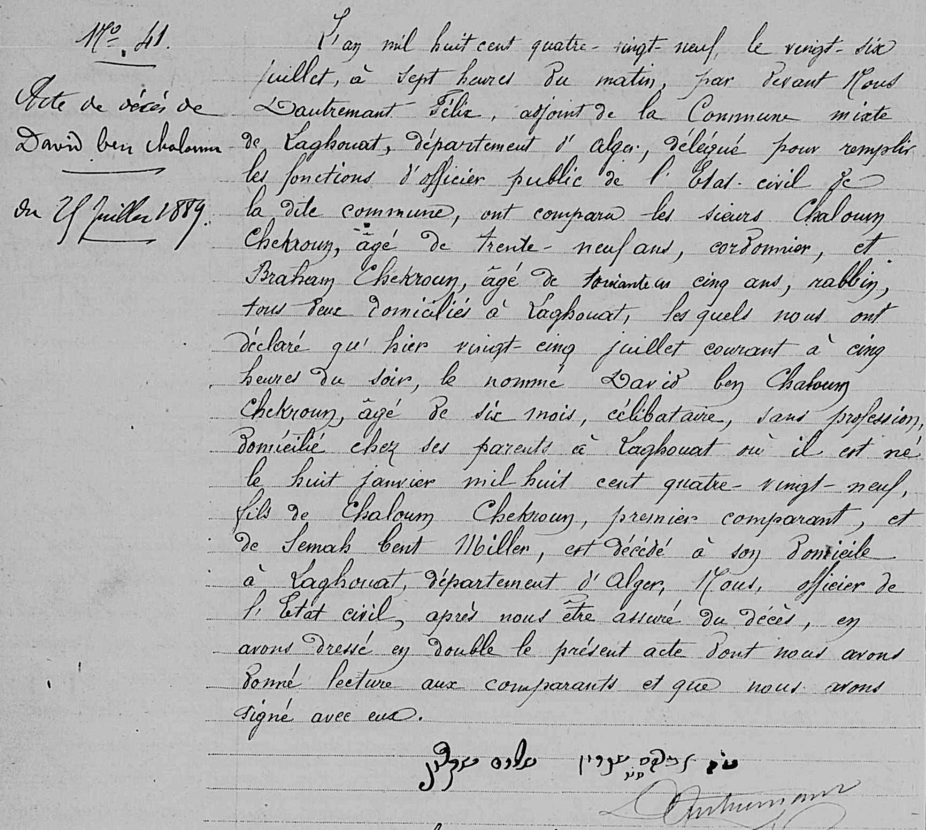 No. 41.
Acte de décès de
David ben Chaloum
du 25 Juillet 1889.
L'an mil huit cent quatre-vingt-neuf, le vingt-six
juillet, à sept heures du matin, par devant Nous
Dautremant Félix, adjoint de la Commune mixte
de Laghouat, département d'Alger, délégué pour remplir
les fonctions d'officier public de l'Etat-civil de
la dite commune, ont comparu les sieurs Chaloum
Chekroun, âgé de trente-neuf ans, cordonnier, et
Braham Chekroun, âgé de cinq ans, rabbin,
tous deux domiciliés à Laghouat, lesquels nous ont
déclaré qu'hier vingt-cinq juillet courant à cinq
heures du soir, le nommé David ben Chaloum
Chekroun, âgé de six mois, célibataire, sans profession,
domicilié chez ses parents à Laghouat où il est né
le huit janvier mil huit cent quatre-vingt-neuf,
fils de Chaloum Chekroun, premier comparant, et
de Semah bent Miller, est décédé à son domicile
à Laghouat, département d'Alger, Nous, officier de
l'Etat civil, après nous être assuré du décès, en
avons dressé en double le présent acte dont nous avons
donné lecture aux comparants et que nous avons
signé avec eux.